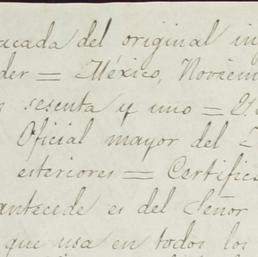 acada del original in
der = México, Noviem
resenta y uno =
Oficial mayor del
esteriores = Certific
antecede es del Señor
que usa en todos los